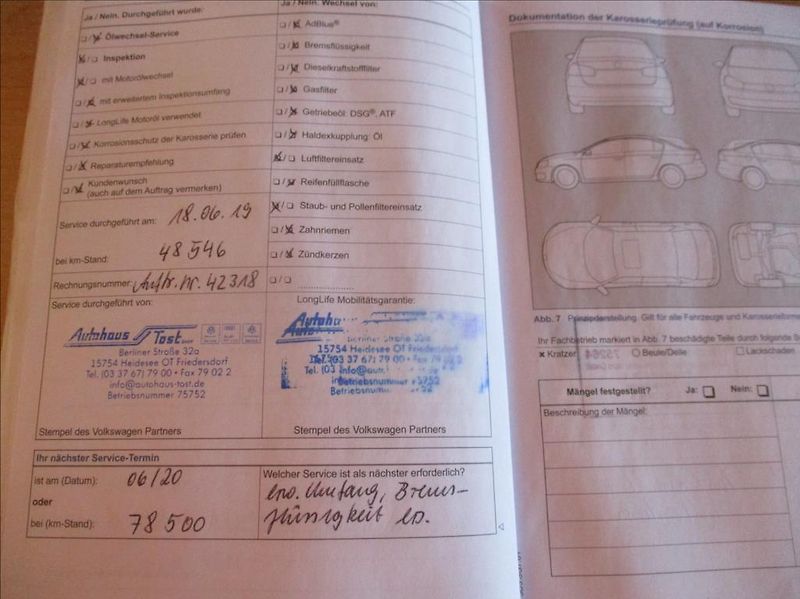 Ja / Nein. Durchgeführt wurde:
Ölwechsel-Service
Inspektion
mit Motorölwechsel
mit erweitertem Inspektionsumfang
LongLife Motoröl verwendet
Korrosionsschutz der Karosserie prüfen
Reparaturempfehlung
Kundenwunsch
(auch auf dem Auftrag vermerken)
Service durchgeführt am: 18.06.19
bei km-Stand: 48 546
Rechnungsnummer: Auftr. nr. 42318
Service durchgeführt von:
Autohaus Tost GmbH
Berliner Straße 32a
15754 Heidesee OT Friedersdorf
Tel. (03 37 67) 79 00 • Fax 79 02 2
info@autohaus-tost.de
Betriebsnummer 75752
Stempel des Volkswagen Partners
Ja / Nein. Wechsel von:
AdBlue®
Bremsflüssigkeit
Dieselkraftstofffilter
Gasfilter
Getriebeöl: DSG®, ATF
Haldexkupplung: Öl
Luftfiltereinsatz
Reifenfüllflasche
Staub- und Pollenfiltereinsatz
Zahnriemen
Zündkerzen
LongLife Mobilitätsgarantie:
Berliner Straße 32a
15754 Heidesee OT Friedersdorf
Tel. (03 37 67) 79 00 • Fax 79 02 2
Betriebsnummer 75752
Stempel des Volkswagen Partners
Ihr nächster Service-Termin
ist am (Datum): 06/20
oder
bei (km-Stand): 78 500
Welcher Service ist als nächster erforderlich?
erw. Umfang, Brems-
flüssigkeit
Dokumentation der Karosserieprüfung (auf Korrosion)
Abb. 7 Prinzipdarstellung. Gilt für alle Fahrzeuge und
Ihr Fachbetrieb markiert in Abb. 7 beschädigte Teile durch folgende
Kratzer Beule/Delle Lackschaden
Mängel festgestellt? Ja: Nein:
Beschreibung der Mängel: